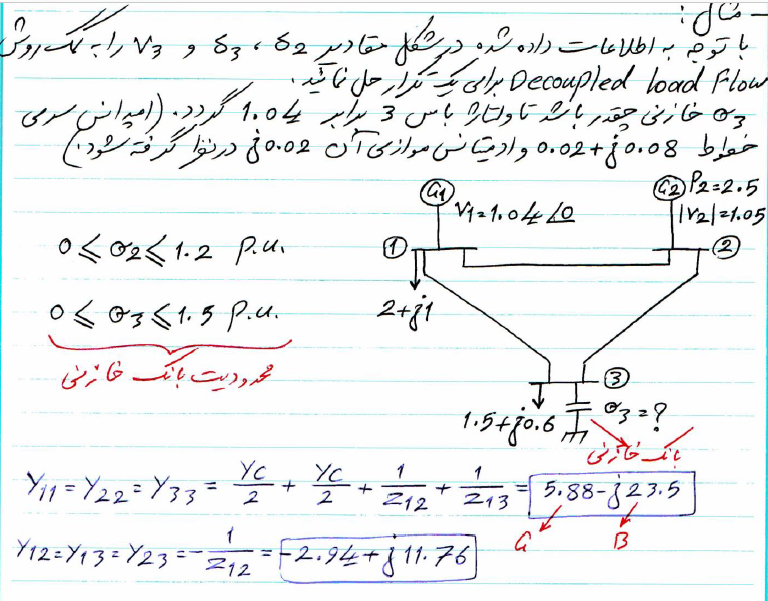 ـ مثال :
با توجه به اطلاعات داده شده در شکل مقادیر δ2 ، δ3 و V3 را به کمک روش
Decoupled load Flow برای یک تکرار حل نمائید.
Q3 خازنی چقدر باشد تا ولتاژ باس 3 برابر 1.04 گردد. (امپدانس سری
خطوط 0.02+j0.08 و ادمیتانس موازی آن j0.02 در نظر گرفته شود.)
G1
G2 P2=2.5
V1=1.04∠0
|V2|=1.05
0 ≤ Q2 ≤ 1.2 P.u.
1
2
2+j1
0 ≤ Q3 ≤ 1.5 P.u.
محدودیت بانک خازنی
3
1.5+j0.6
Q3=?
بانک خازنی
Y11=Y22=Y33= YC/2 + YC/2 + 1/Z12 + 1/Z13 = 5.88-j23.5
G B
Y12=Y13=Y23=-1/Z12=-2.94+j11.76